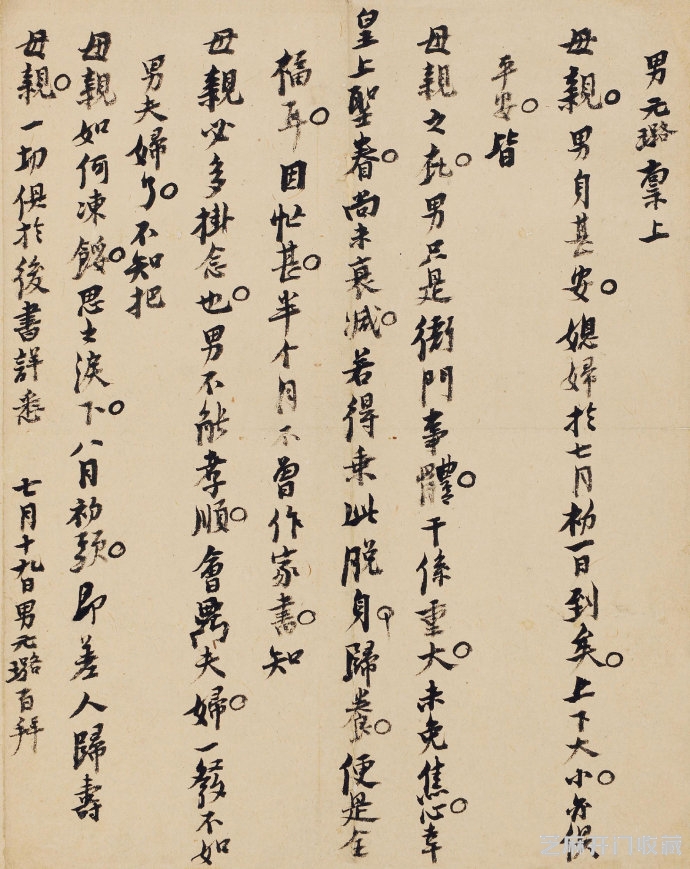 男元璐稟上
母親。男身甚安。媳婦於七月初一日到矣。上下大小。亦俱
平安。皆
母親之庇。男只是衙門事體。干係重大。未免焦心。幸
皇上聖眷。尚未衰減。若得乘此脫身。歸養。便是全
福耳。因忙甚。半个月不曾作家書。知
母親必多掛念也。男不能孝順。會鼎夫婦。一發不如
男夫婦了。不知把
母親如何凍餒。思之淚下。八月初頭。即差人歸壽
母親。一切俱於後書詳悉 七月十九日男元璐百拜
芝麻开门收藏